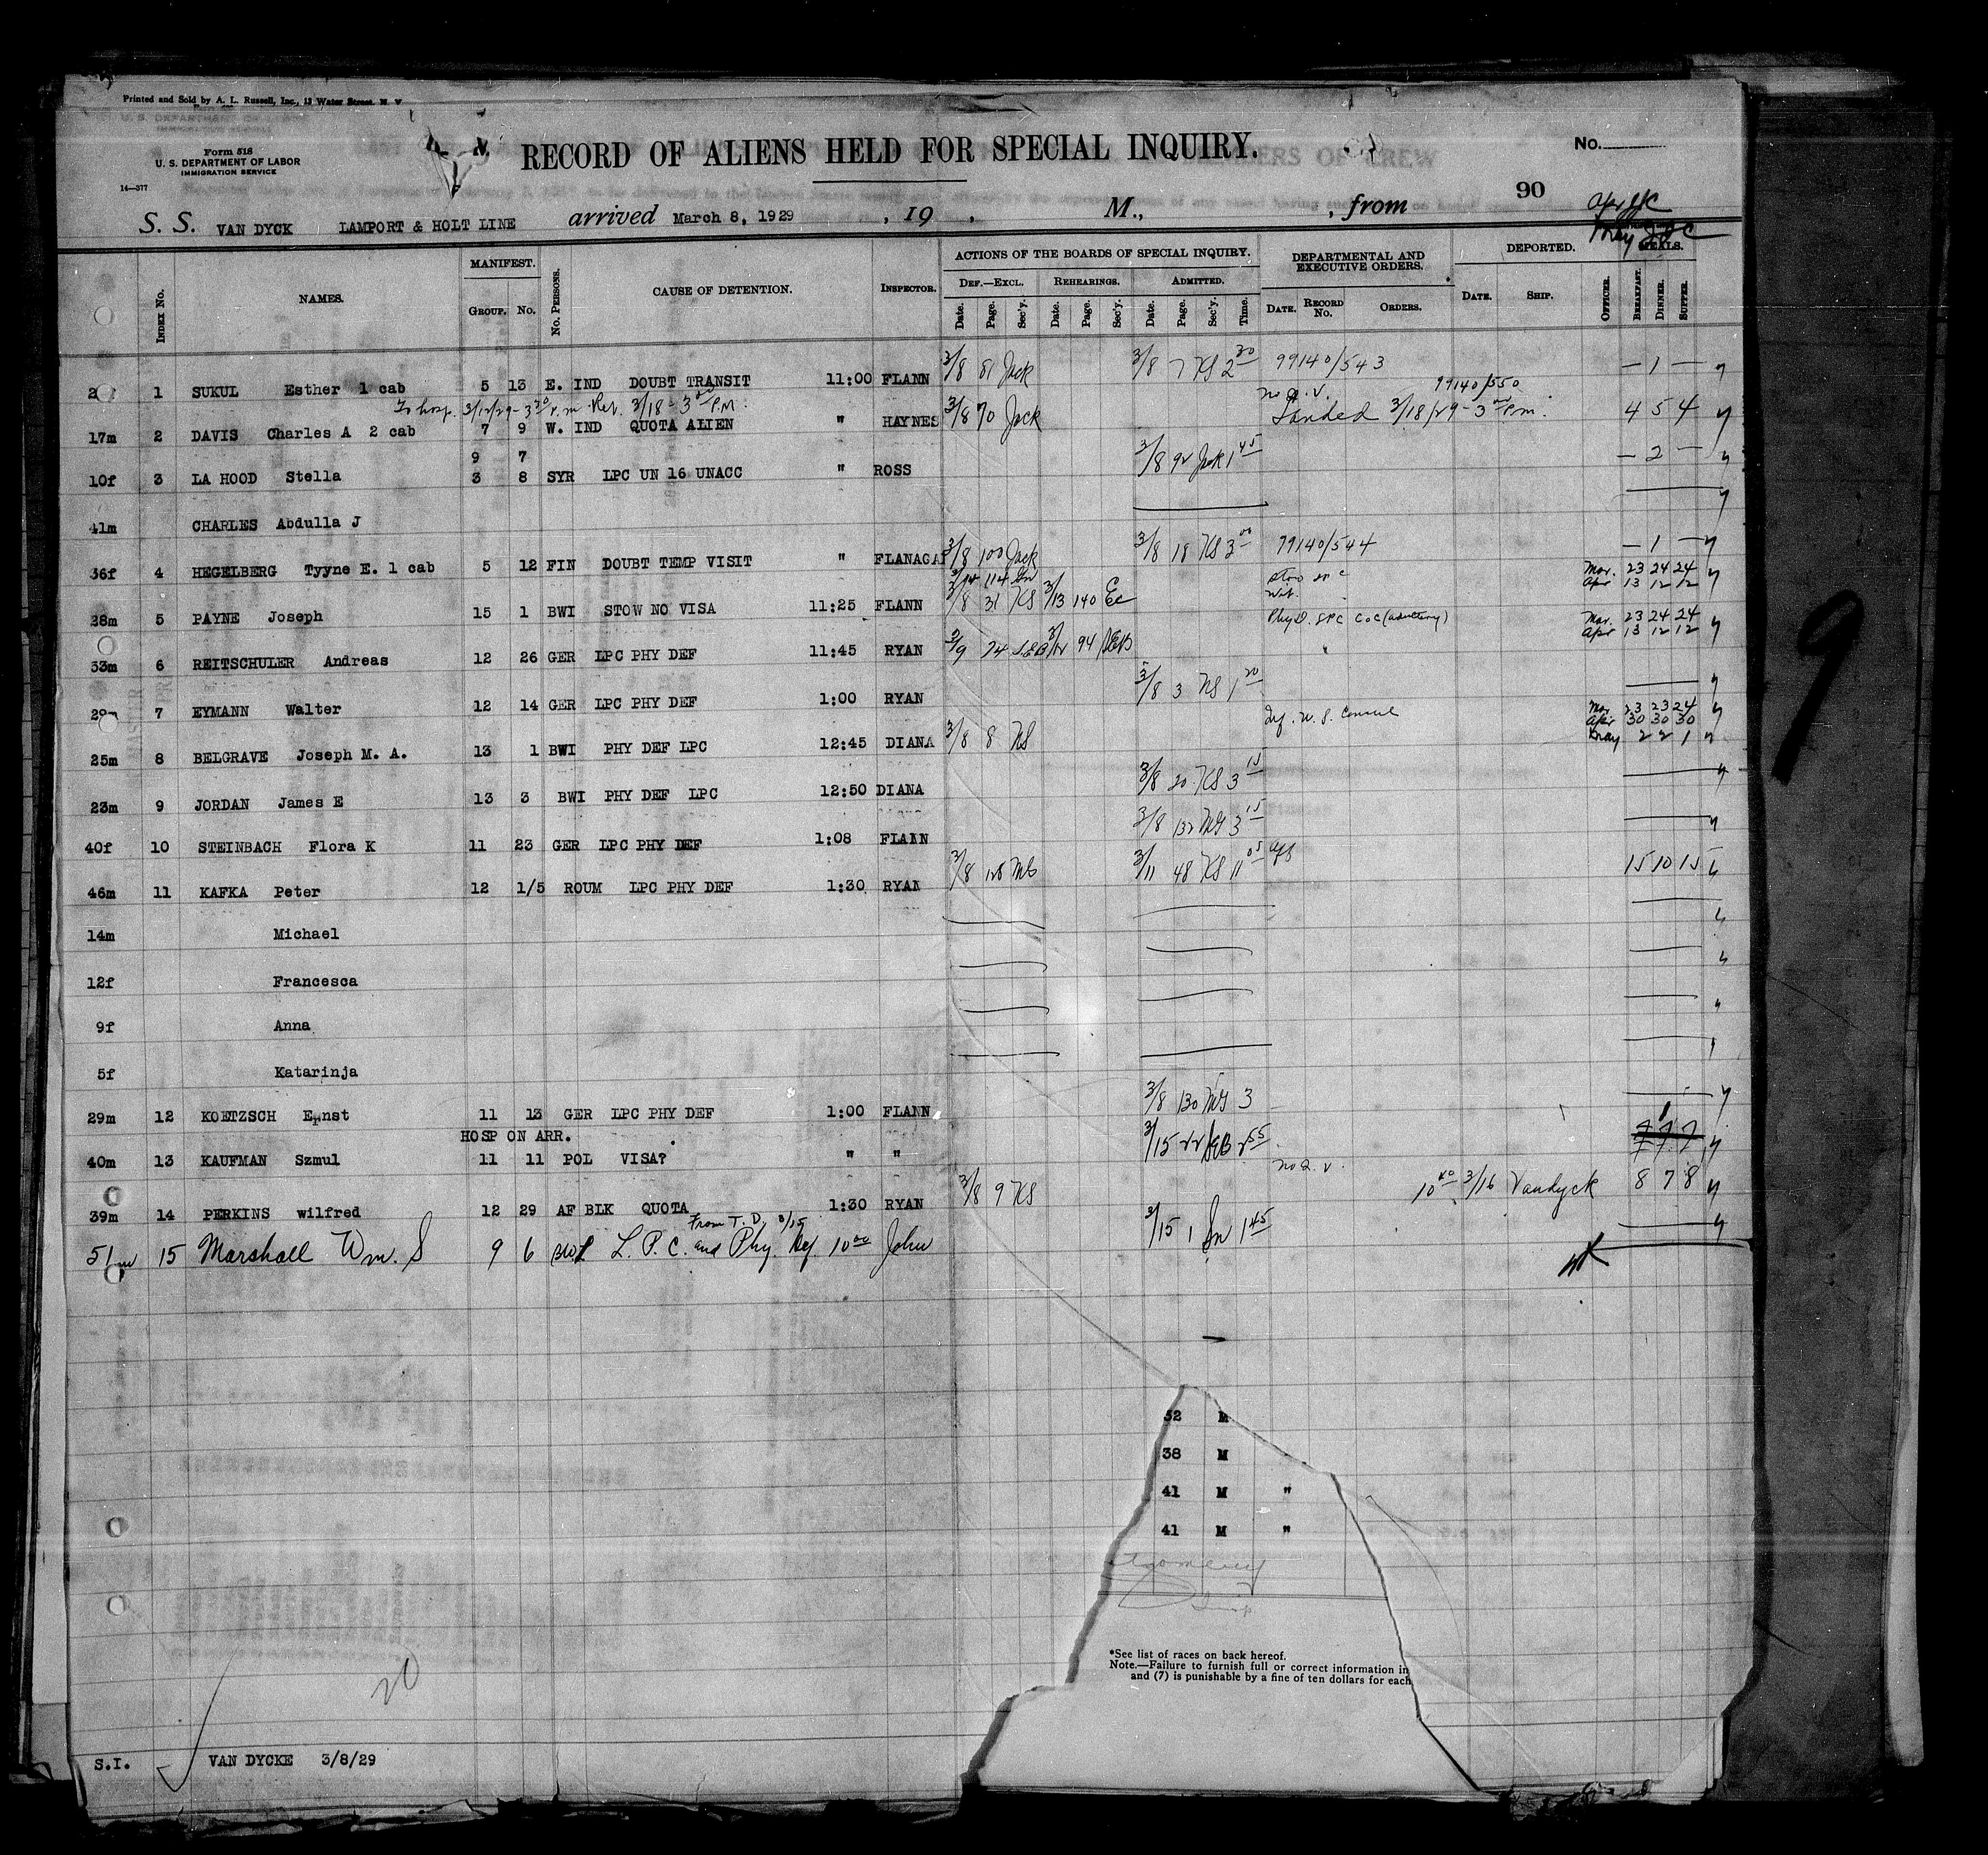 Printed and Sold by A. L. Russell, Inc., 13 Water Street. N. Y
Form 518
U. S. DEPARTMENT OF LABOR
IMMIGRATION SERVICE
14—377
RECORD OF ALIENS HELD FOR SPECIAL INQUIRY.
No.
90
S. S. VAN DYCK LAMPORT & HOLT LINE arrived March 8, 1929 , 19 , M., , from
INDEX No. NAMES. MANIFEST. GROUP. No. No. PERSONS. CAUSE OF DETENTION. INSPECTOR. ACTIONS OF THE BOARDS OF SPECIAL INQUIRY. DEPARTMENTAL AND EXECUTIVE ORDERS. DEPORTED. MEALS.
DEF.—EXCL. REHEARINGS. ADMITTED.
Date. Page. Sec'y. Date. Page. Sec'y. Date. Page. Sec'y. Time. DATE. RECORD No. ORDERS. DATE. SHIP. OFFICER. BREAKFAST. DINNER. SUPPER.
1 SUKUL Esther 1 cab 5 13 E. IND DOUBT TRANSIT 11:00 FLANN 3/8 81 Jack 3/8 7 KS 2 30 99140/543 — 1 —
To hosp. 3/12/29 - 3 30 P.m. Ret. 3/18 - 3 00 P.M. no q. v. 99140/550
17m 2 DAVIS Charles A 2 cab 7 9 W. IND QUOTA ALIEN " HAYNES 3/8 70 Jack Landed 3/18/29 - 3 00 P.m. 4 5 4
9 7
10f 3 LA HOOD Stella 3 8 SYR LPC UN 16 UNACC " ROSS 3/8 92 Jack 1 45 — 2 —
41m CHARLES Abdulla J
36f 4 HEGELBERG Tyyne E. 1 cab 5 12 FIN DOUBT TEMP VISIT " FLANAGA 3/8 100 Jack 3/8 18 KS 3 00 99140/544 — 1 —
3/14 114 Mar. 23 24 24
28m 5 PAYNE Joseph 15 1 BWI STOW NO VISA 11:25 FLANN 3/8 31 KS 3/13 140 Ec Apr 13 12 12
Phy D. LPC C o C (adultery) Mar. 23 24 24
53m 6 REITSCHULER Andreas 12 26 GER LPC PHY DEF 11:45 RYAN 3/9 74 94 Apr 13 12 12
7 EYMANN Walter 12 14 GER LPC PHY DEF 1:00 RYAN 3/8 3 KS 1 20
Mar 23 23 24
Apr 30 30 30
25m 8 BELGRAVE Joseph M. A. 13 1 BWI PHY DEF LPC 12:45 DIANA 3/8 8 KS May 2 2 1
23m 9 JORDAN James E 13 3 BWI PHY DEF LPC 12:50 DIANA 3/8 20 KS 3 15
40f 10 STEINBACH Flora K 11 23 GER LPC PHY DEF 1:08 FLANN 3/8 132 3 15
46m 11 KAFKA Peter 12 1/5 ROUM LPC PHY DEF 1:30 RYAN 3/8 128 3/11 48 KS 11 05 15 10 15
14m Michael
12f Francesca
9f Anna
5f Katarinja
29m 12 KOETZSCH Ernst 11 13 GER LPC PHY DEF 1:00 FLANN 3/8 130 3
HOSP ON ARR.
40m 13 KAUFMAN Szmul 11 11 POL VISA? " " 3/15 22 2 55
no q. v.
39m 14 PERKINS wilfred 12 29 AF BLK QUOTA 1:30 RYAN 3/8 9 KS 10 40 3/16 Vandyck 8 7 8
From T. D. 3/15
51m 15 Marshall Wm. S 9 6 BWI L. P. C. and Phy. Def. 10 00 John 3/15 1 1 45
52 M
38 M
41 M "
41 M "
*See list of races on back hereof.
Note.—Failure to furnish full or correct information in
and (7) is punishable by a fine of ten dollars for each
20
S.I. VAN DYCKE 3/8/29
9